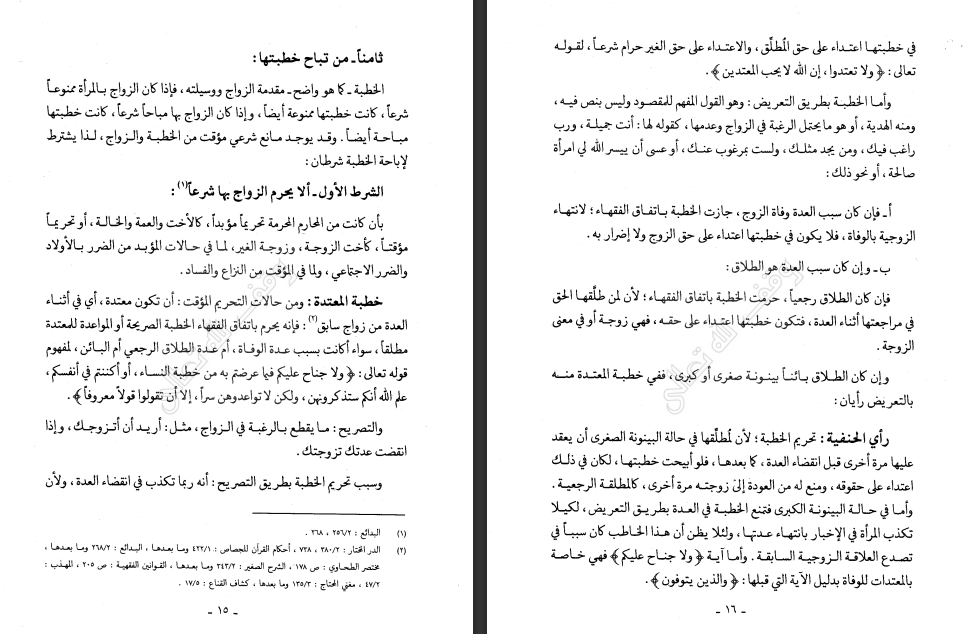 ثامناً ـ من تباح خطبتها :
الخطبة ـ كما هو واضح ـ مقدمة الزواج ووسيلته ، فإذا كان الزواج بالمرأة ممنوعاً
شرعاً ، كانت خطبتها ممنوعة أيضاً ، وإذا كان الزواج بها مباحاً شرعاً ، كانت خطبتها
مباحة أيضاً . وقد يوجد مانع شرعي مؤقت من الخطبة والزواج ، لذا يشترط
لإباحة الخطبة شرطان :
الشرط الأول ـ ألا يحرم الزواج بها شرعاً(١) :
بأن كانت من المحارم المحرمة تحريماً مؤبداً ، كالأخت والعمة والخالة ، أو تحريماً
مؤقتاً ، كأخت الزوجة ، وزوجة الغير ، لما في حالات المؤبد من الضرر بالأولاد
والضرر الاجتماعي ، ولما في المؤقت من النزاع والفساد .
خطبة المعتدة : ومن حالات التحريم المؤقت : أن تكون معتدة ، أي في أثناء
العدة من زواج سابق(٢) : فإنه يحرم باتفاق الفقهاء الخطبة الصريحة أو المواعدة للمعتدة
مطلقاً ، سواء أكانت بسبب عدة الوفاة ، أم عدة الطلاق الرجعي أم البائن ، لمفهوم
قوله تعالى : ﴿ ولا جناح عليكم فيما عرضتم به من خطبة النساء ، أو أكننتم في أنفسكم ،
علم الله أنكم ستذكرونهن ، ولكن لا تواعدوهن سراً ، إلا أن تقولوا قولاً معروفاً ﴾ .
والتصريح : ما يقطع بالرغبة في الزواج ، مثل : أريد أن أتزوجك ، وإذا
انقضت عدتك تزوجتك .
وسبب تحريم الخطبة بطريق التصريح : أنه ربما تكذب في انقضاء العدة ، ولأن
(١) البدائع : ٢٥٦/٢ ، ٢٦٨ .
(٢) الدر المختار : ٣٨٠/٢ ، ٧٣٨ ، أحكام القرآن للجصاص : ٤٢٢/١ وما بعدها ، البدائع : ٢٦٨/٢ وما بعدها ،
مختصر الطحاوي : ص ١٧٨ ، الشرح الصغير : ٣٤٣/٢ وما بعدها ، القوانين الفقهية : ص ٢٠٥ ، المهذب :
٤٧/٢ ، مغني المحتاج : ١٣٥/٣ وما بعدها ، كشاف القناع : ١٧/٥ .
ـ ١٥ ـ
في خطبتها اعتداء على حق المُطلِّق ، والاعتداء على حق الغير حرام شرعاً ، لقوله
تعالى : ﴿ ولا تعتدوا ، إن الله لا يحب المعتدين ﴾ .
وأما الخطبة بطريق التعريض : وهو القول المفهم للمقصود وليس بنص فيه ،
ومنه الهدية ، أو هو ما يحتمل الرغبة في الزواج وعدمها ، كقوله لها : أنت جميلة ، ورب
راغب فيك ، ومن يجد مثلك ، ولست بمرغوب عنك ، أو عسى أن ييسر الله لي امرأة
صالحة ، أو نحو ذلك :
أ ـ فإن كان سبب العدة وفاة الزوج ، جازت الخطبة باتفاق الفقهاء ؛ لانتهاء
الزوجية بالوفاة ، فلا يكون في خطبتها اعتداء على حق الزوج ولا إضرار به .
ب ـ وإن كان سبب العدة هو الطلاق :
فإن كان الطلاق رجعياً ، حرمت الخطبة باتفاق الفقهاء ؛ لأن لمن طلَّقها الحق
في مراجعتها أثناء العدة ، فتكون خطبتها اعتداء على حقه ، فهي زوجة أو في معنى
الزوجة .
وإن كان الطلاق بائناً بينونة صغرى أو كبرى ، ففي خطبة المعتدة منه
بالتعريض رأيان :
رأي الحنفية : تحريم الخطبة ؛ لأن لمُطلِّقها في حالة البينونة الصغرى أن يعقد
عليها مرة أخرى قبل انقضاء العدة ، كما بعدها ، فلو أبيحت خطبتها ، لكان في ذلك
اعتداء على حقوقه ، ومنع له من العودة إلى زوجته مرة أخرى ، كالمطلقة الرجعية .
وأما في حالة البينونة الكبرى فتمنع الخطبة في العدة بطريق التعريض ، لكيلا
تكذب المرأة في الإخبار بانتهاء عدتها ، ولئلا يظن أن هذا الخاطب كان سبباً في
تصدع العلاقة الزوجية السابقة . وأما آية ﴿ ولا جناح عليكم ﴾ فهي خاصة
بالمعتدات للوفاة بدليل الآية التي قبلها : ﴿ والذين يتوفون ﴾ .
ـ ١٦ ـ
وقف لله تعالى
وقف لله تعالى